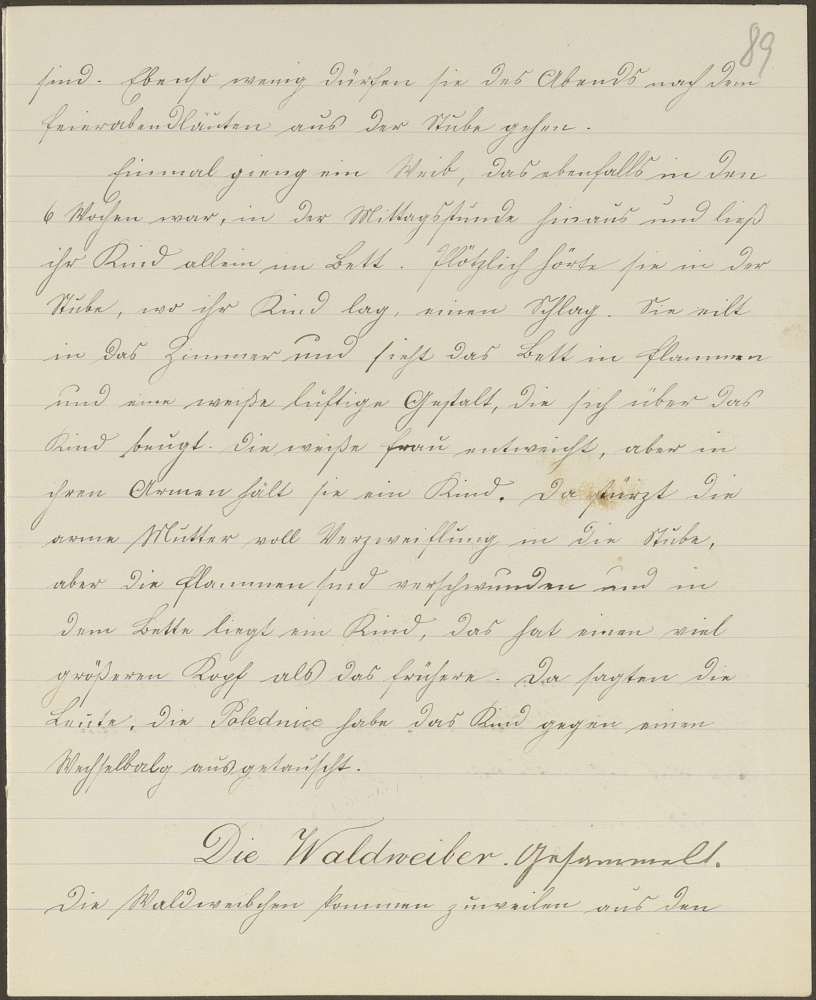 89
sind. Ebenso wenig dürfen sie des Abends nach dem
Feierabendläuten aus der Stube gehen.
Einmal gieng ein Weib, das ebenfalls in den
6 Wochen war, in der Mittagsstunde hinaus und ließ
ihr Kind allein im Bett. Plötzlich hörte sie in der
Stube, wo ihr Kind lag, einen Schlag. Sie eilt
in das Zimmer und sieht das Bett in Flammen
und eine weiße luftige Gestalt, die sich über das
Kind beugt. Die weiße Frau entweicht, aber in
ihren Armen hält sie ein Kind. Da stürzt die
arme Mutter voll Verzweiflung in die Stube,
aber die Flammen sind verschwunden und in
dem Bette liegt ein Kind, das hat einen viel
größeren Kopf als das frühere. Da sagten die
Leute, die Polednice habe das Kind gegen einen
Wechselbalg ausgetauscht.
Die Waldweiber. Gesammelt.
Die Waldweibchen kommen zuweilen aus den